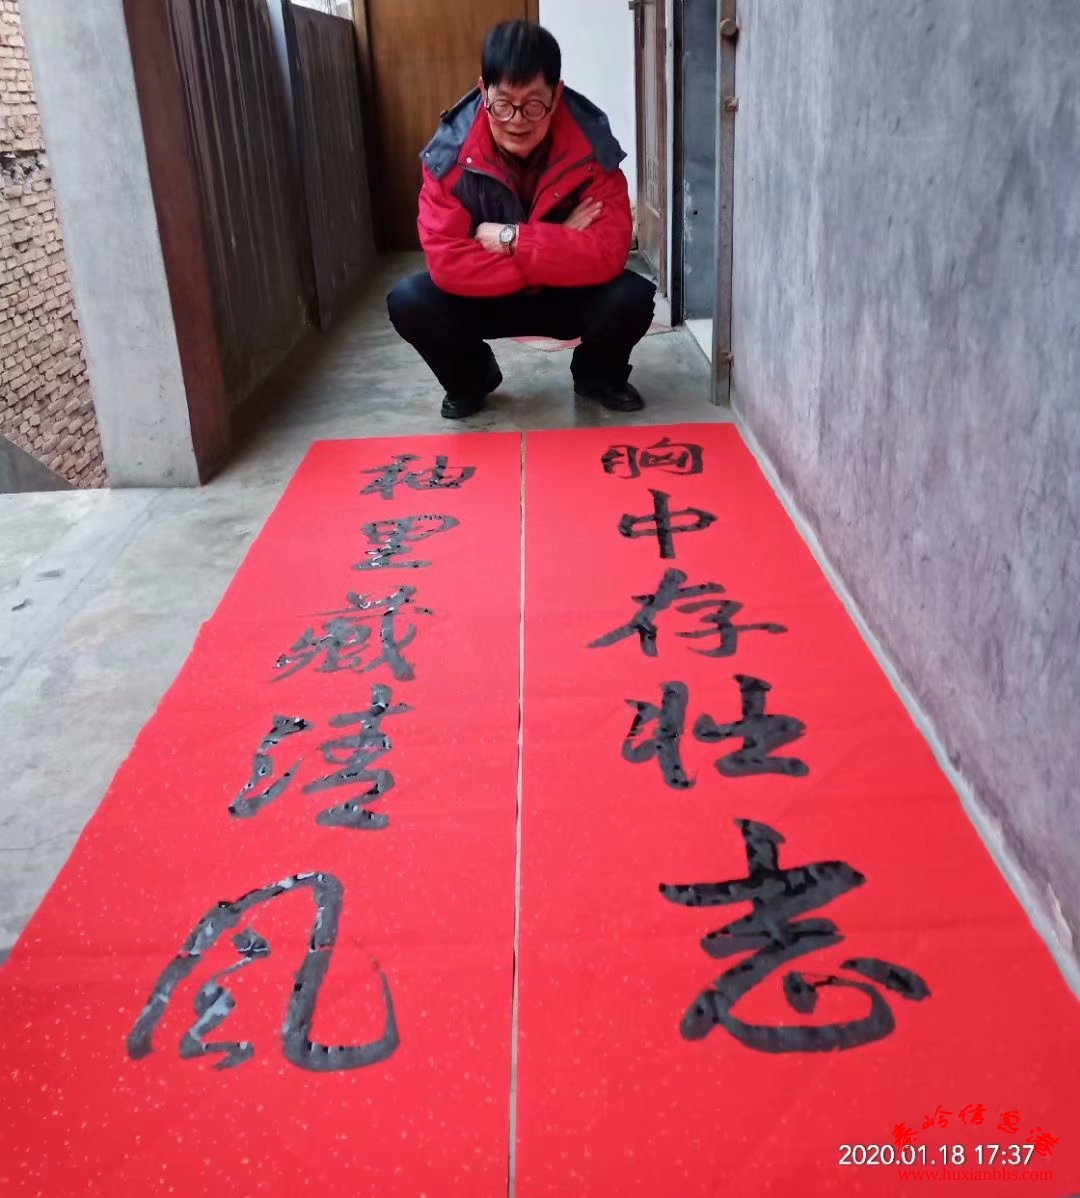 胸中存壮志
袖里藏清风
秦岭信息港
2020.01.18 17:37
www.huxianbbs.com